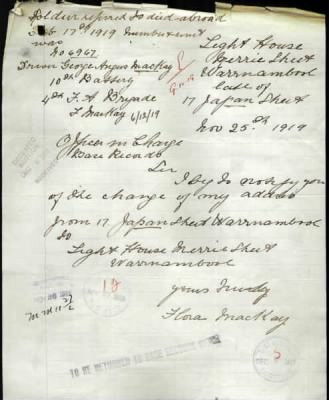 Soldier refered to died abroad
Feb 17th 1919 number & unit
was
No 6967
Driver George Angus MacKay
10th Battery
4th F. A Brigade
F MacKay 6/12/19
Light House
Merrie Street
Warrnambool
late of
17 Japan Street
Nov 25th 1919
Officer in Charge
Base Records
Sir
I beg to notify you
of the change of my address
from 17 Japan Street Warrnambool
to
Light House Merrie Street
Warrnambool
yours truely
Flora MacKay
TO BE RETURNED TO BASE RECORDS OFFICE